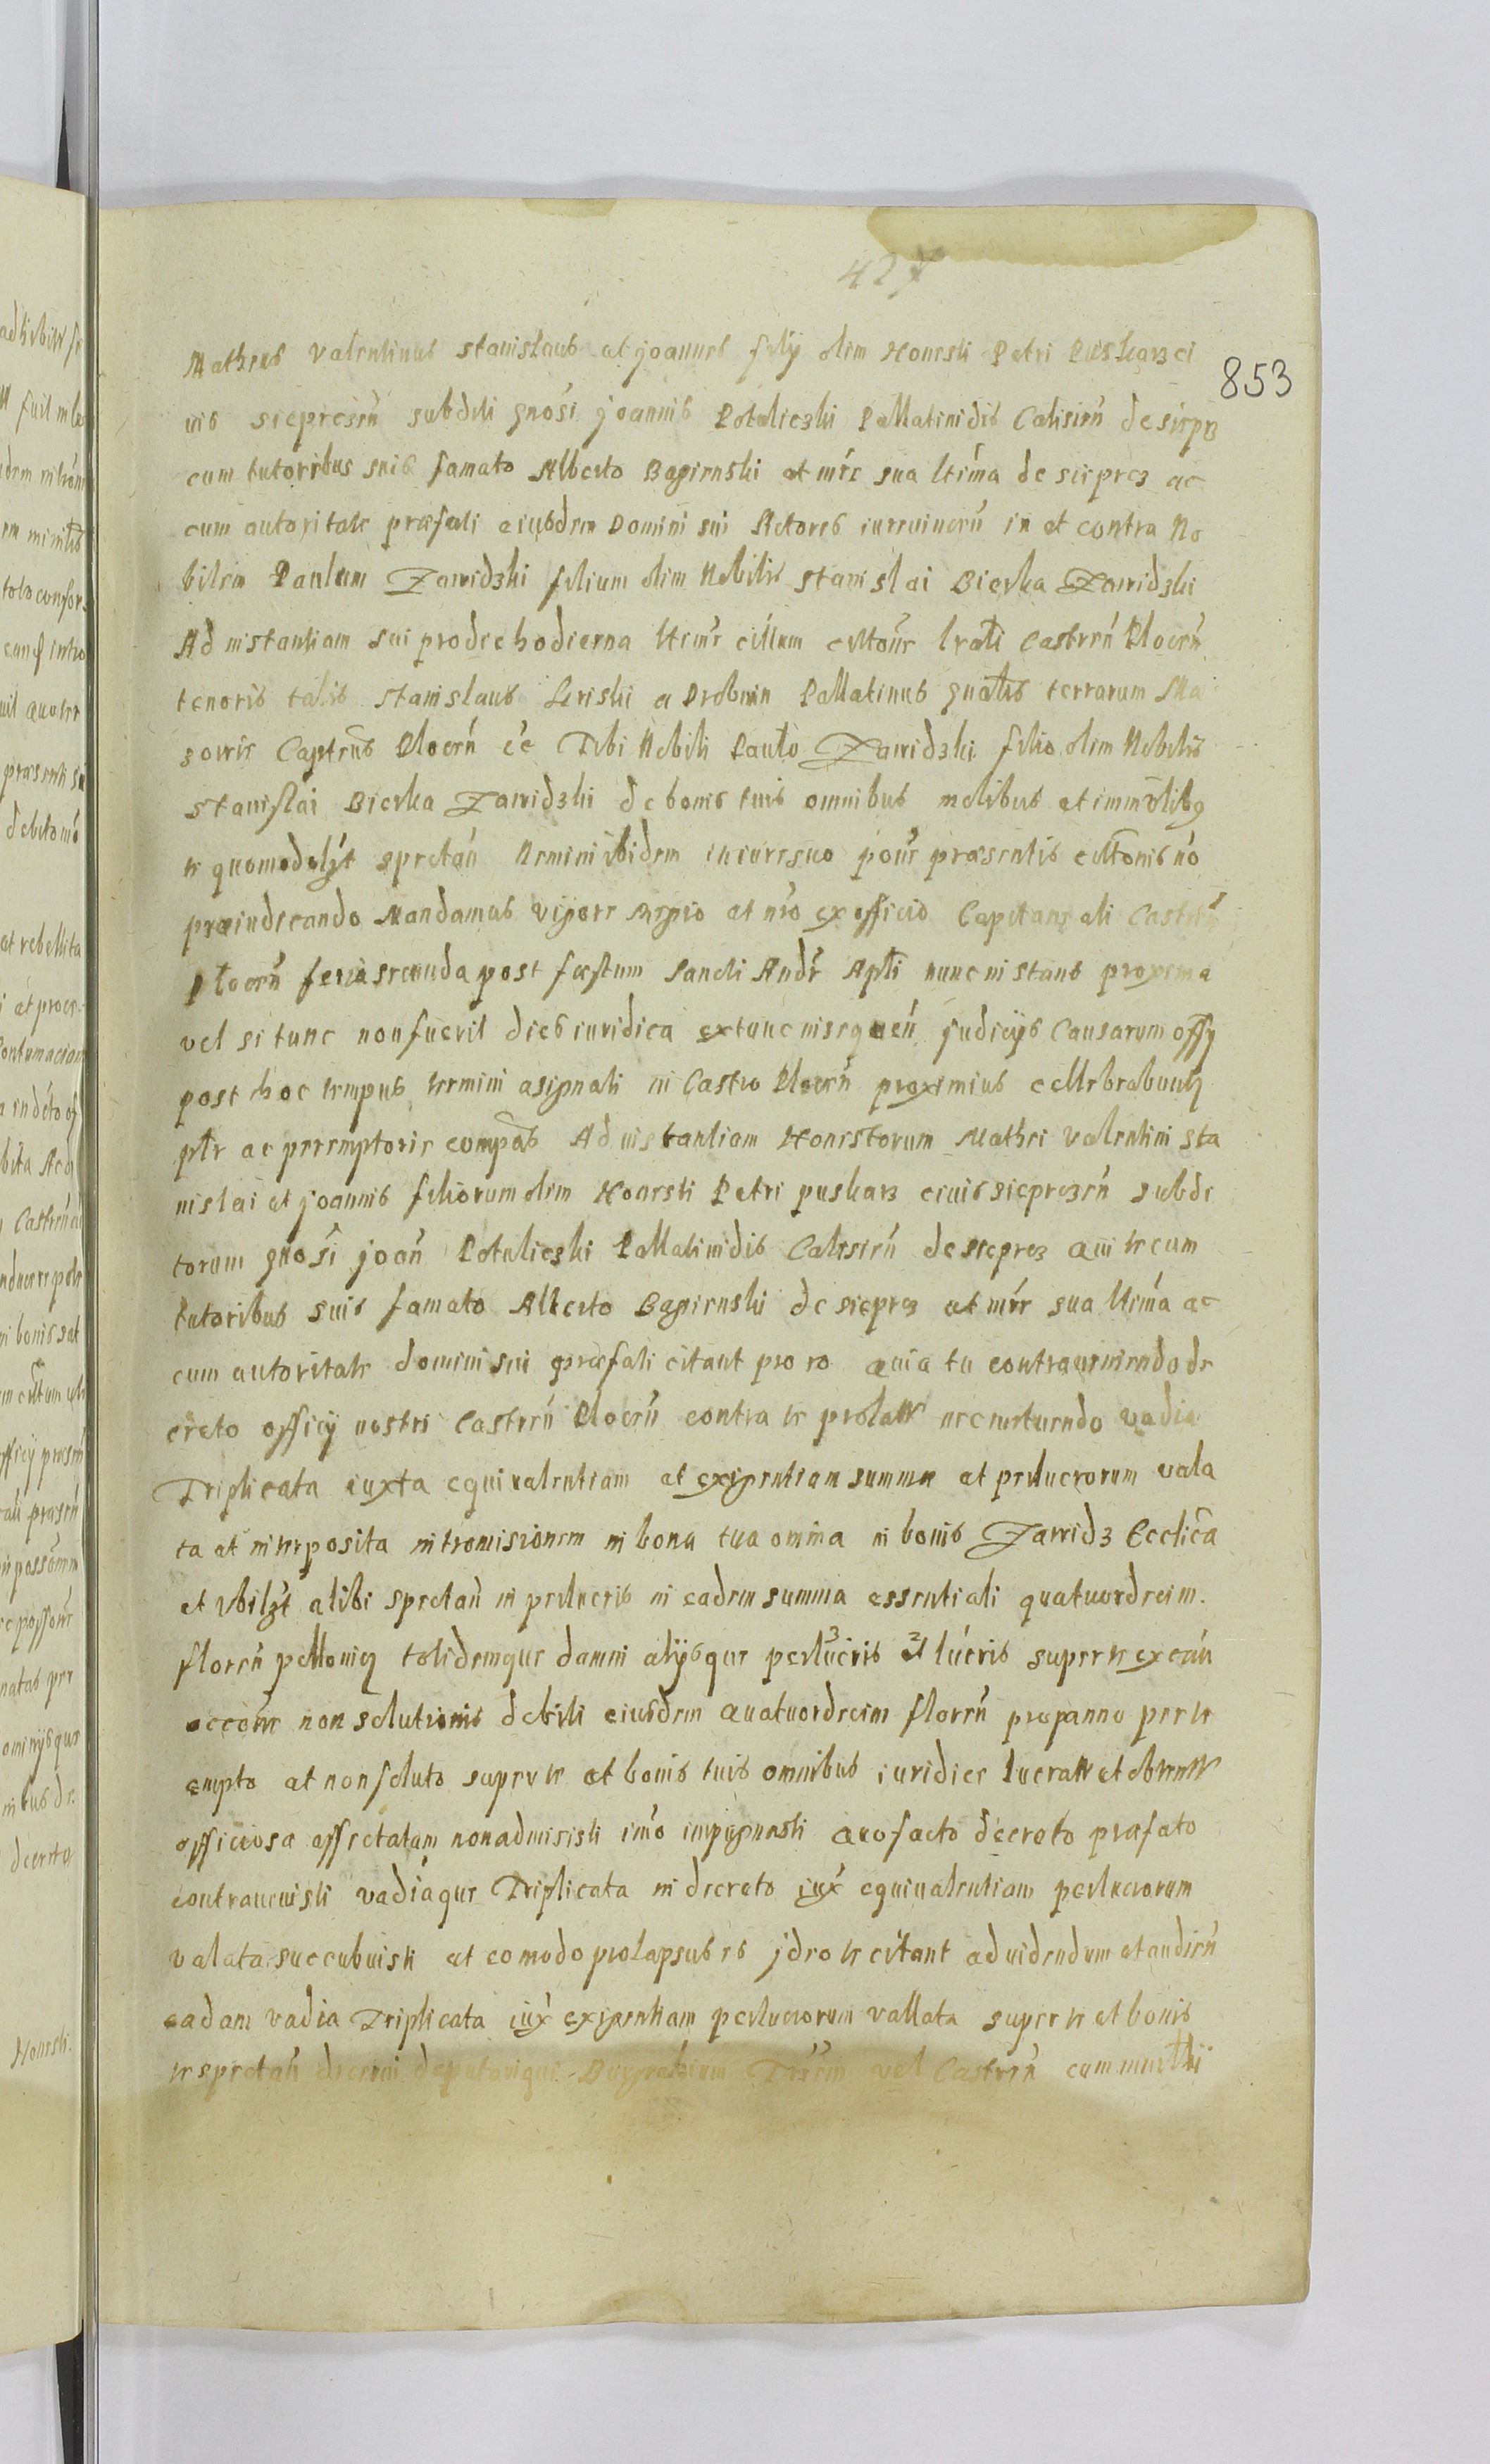 427
853
Matheus Valentinus Stanislaus et Joannes filÿ olim Honesti Petri Puskarz ci
uis siepreżeñ subditi gnosi Joannis Potuliczki Pallatinidis Calisieñ de sieprz
cum tutoribus suis famato Alberto Bagienski et mŕe sua ltima de sieprez ac
cum autoritate præfati eiusdem Domini sui Actores iurevinceñ in et contra No
bilem Paulum Zawidzki filium olim Nobilis Stanislai Bierka Zawidzki
Ad instantiam sui pro die hodierna ltime citum cittoñe lrati Castreñ Ploceñ
tenoris talis Stanislaus Kriski a Drobnin Pallatinus gnalis terrarum Ma
zowie Captneus Ploceñ ec Tibi Nobili Paulo Zawidzki filio olim Nobilis
Stanislai Bierka Zawidzki de bonis tuis omnibus mobibus et immobilibq
te quomodolzt spectañ Nemini ibidem in iure suo poure præsentis cittonis no
præiudicando Mandamus vigore Regio et nro ex officio Capitaneali Castreñ
Ploceñ feria secunda post festum Sancti Andre Apti nunc instans proxima
vel si tunc non fuerit dies iuridica extunc in sequeñ Judicÿs Causarum offÿ
post hoc tempus termini asignati in Castro Ploceñ proximius cellebrabuntz
pltr ac peremptorie compas Ad instantiam Honestorum Mathei Valentini Sta
nislai et Joannis filiorum olim Honesti Petri puskarz ciuis siepreżeñ subdi
torum gnosi Joañ Potuliczki Pallatinidis Calisieñ de sieprez Qui te cum
tutoribus suis famato Alberto Bagienski de sieprez et mŕe sua ltima ac
cum autoritate domini sui præfati citant pro eo quia tu contraueniendo de
creto officÿ nostri Castreñ Ploceñ contra te prolatto nec metuendo vadia
Triplicata iuxta equiualentiam et exigentiam summæ et perlucrorum vala
ta et interposita intromisionem in bona tua omnia in bonis Zawidz Ecclica
et vbilzt alibi spectañ in perlucris in eadem summa essentiali quatuordecim.
floreñ pollonicz totidemque damni alÿsque perlucris et lucris super te ex eañ
occoñe non solutionis debiti eiusdem quatuordecim floreñ pro panno per te
empto et non soluto super te et bonis tuis omnibus iuridice lucratto et obtento
officiosa affectatam non admisisti imo impugnasti quo facto decreto præfato
contrauenisti vadiaque Triplicata in decreto iux equiualentiam perlucrorum
valata succubuisti et eo modo prolapsus es Jdeo te citant ad videndum et audieñ
eadam vadia Triplicata iux exigentiam perlucrorum vallata super te et bonis
te spectañ decerni deputarique Burgrabium Treñ vel Castreñ cum